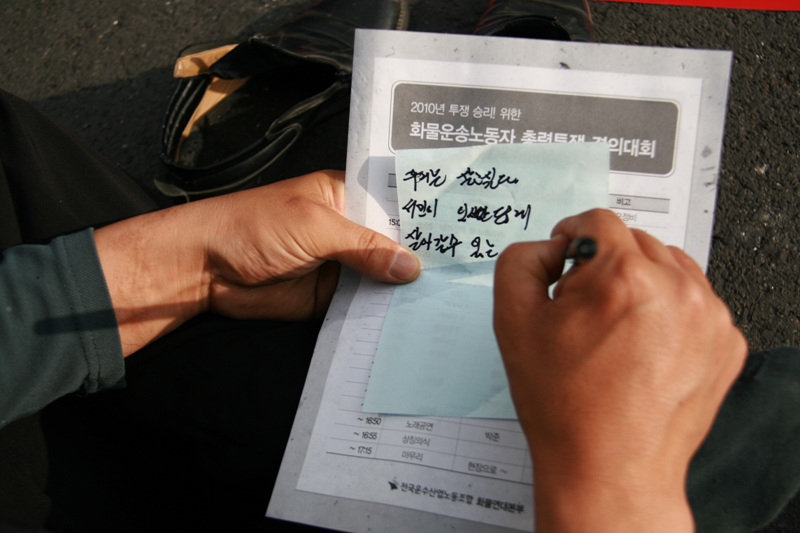 2010년 투쟁 승리! 위한
화물운송노동자 총력투쟁 결의대회
비고
우리는 살고싶다.
서민이 인간답게
살아갈수 있는
~ 16:50 노래공연 박준
~ 16:55 상징의식
~ 17:15 마무리 현장으로 ~
전국운수산업노동조합 화물연대본부